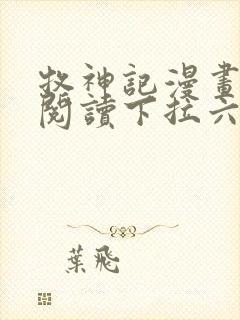 牧神記漫畫
閱讀下拉六
葉飛